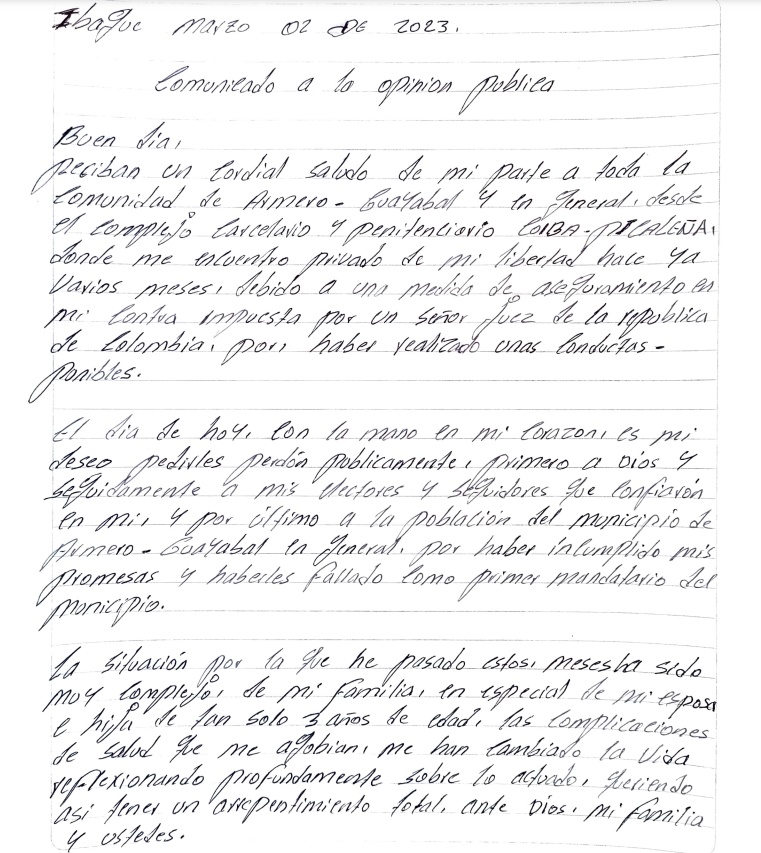 Ibague Marzo 02 DE 2023.
Comunicado a la opinion publica
Buen dia,
Reciban un Cordial saludo de mi parte a toda la
Comunidad de Armero-Guayabal y en general, desde
el complejo Carcelario y penitenciario COIBA-PICALEÑA,
donde me encuentro privado de mi libertad hace ya
Varios meses, debido a una medida de aseguramiento en
mi Contra impuesta por un señor Juez de la republica
de Colombia, por, haber realizado unas Conductas-
ponibles.
El dia de hoy, Con la mano en mi Corazon, es mi
deseo pedirles perdón publicamente, primero a Dios y
seguidamente a mis electores y seguidores que Confiarón
en mi, y por último a la población del municipio de
Armero-Guayabal en general, por haber incumplido mis
promesas y haberles fallado Como primer mandatario del
Municipio.
La situación por la que he pasado estos, meses ha sido
muy Complejo, de mi familia, en especial de mi esposa
e hija de tan solo 3 años de edad, las Complicaciones
de salud que me agobian, me han Cambiado la Vida
reflexionando profundamente sobre lo actuado, queriendo
asi tener un arrepentimiento total, ante Dios, mi familia
y ustedes.